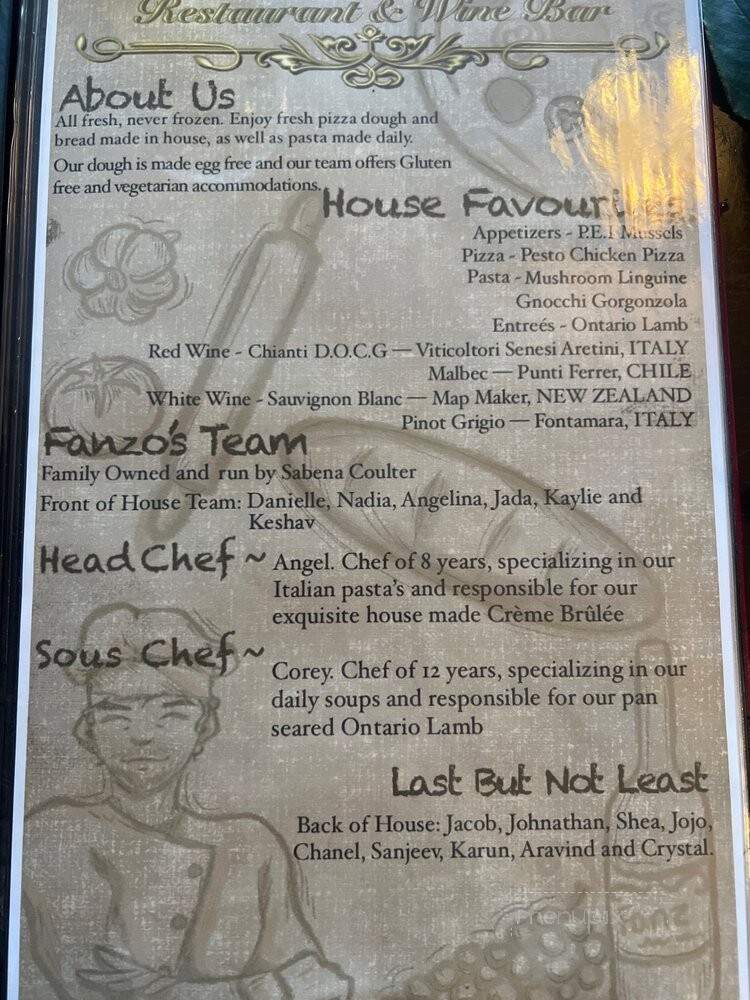 Restaurant & Wine Bar
About Us
All fresh, never frozen. Enjoy fresh pizza dough and
bread made in house, as well as pasta made daily.
Our dough is made egg free and our team offers Gluten
free and vegetarian accommodations.
House Favourites
Appetizers - P.E.I Mussels
Pizza - Pesto Chicken Pizza
Pasta - Mushroom Linguine
Gnocchi Gorgonzola
Entreés - Ontario Lamb
Red Wine - Chianti D.O.C.G — Viticoltori Senesi Aretini, ITALY
Malbec — Punti Ferrer, CHILE
White Wine - Sauvignon Blanc — Map Maker, NEW ZEALAND
Pinot Grigio — Fontamara, ITALY
Fanzo's Team
Family Owned and run by Sabena Coulter
Front of House Team: Danielle, Nadia, Angelina, Jada, Kaylie and
Keshav
Head Chef ~ Angel. Chef of 8 years, specializing in our
Italian pasta's and responsible for our
exquisite house made Crème Brûlée
Sous Chef ~
Corey. Chef of 12 years, specializing in our
daily soups and responsible for our pan
seared Ontario Lamb
Last But Not Least
Back of House: Jacob, Johnathan, Shea, Jojo,
Chanel, Sanjeev, Karun, Aravind and Crystal.
menupix